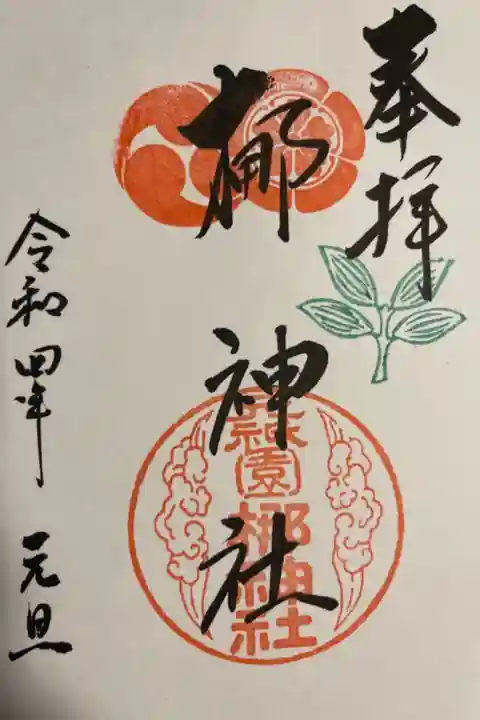 奉拝
梛神社
元祇園梛神社
令和四年 元旦